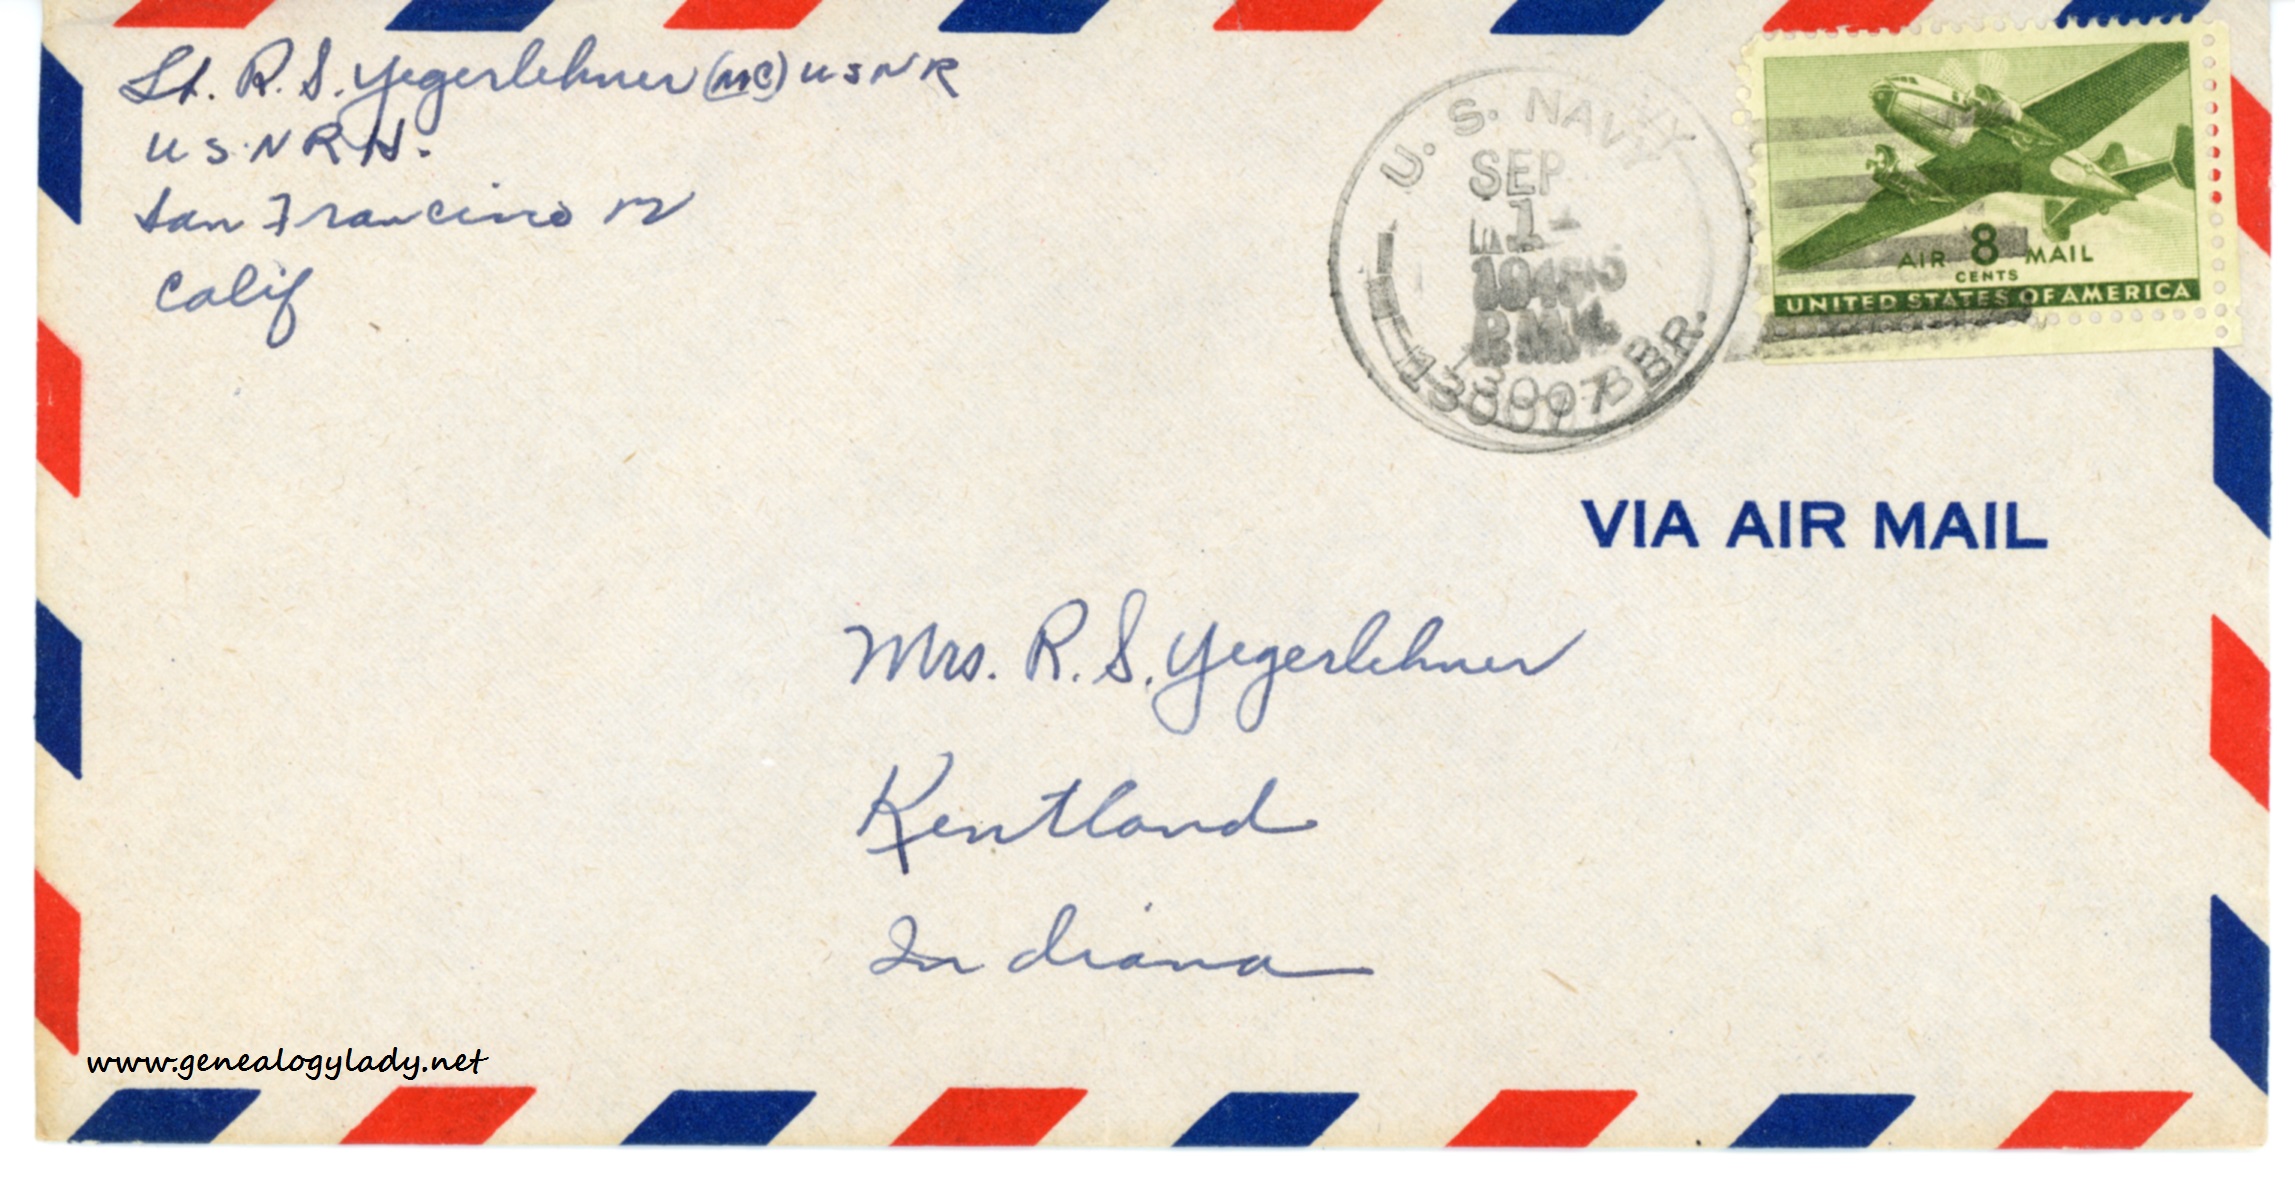 Lt. R. S. Yegerlehner (MC) USNR
U.S.N.R.H.
San Francisco
Calif
U. S. NAVY
SEP
1
BR.
AIR 8 MAIL
CENTS
UNITED STATES OF AMERICA
VIA AIR MAIL
Mrs. R. S. Yegerlehner
Kentland
Indiana
www.genealogylady.net